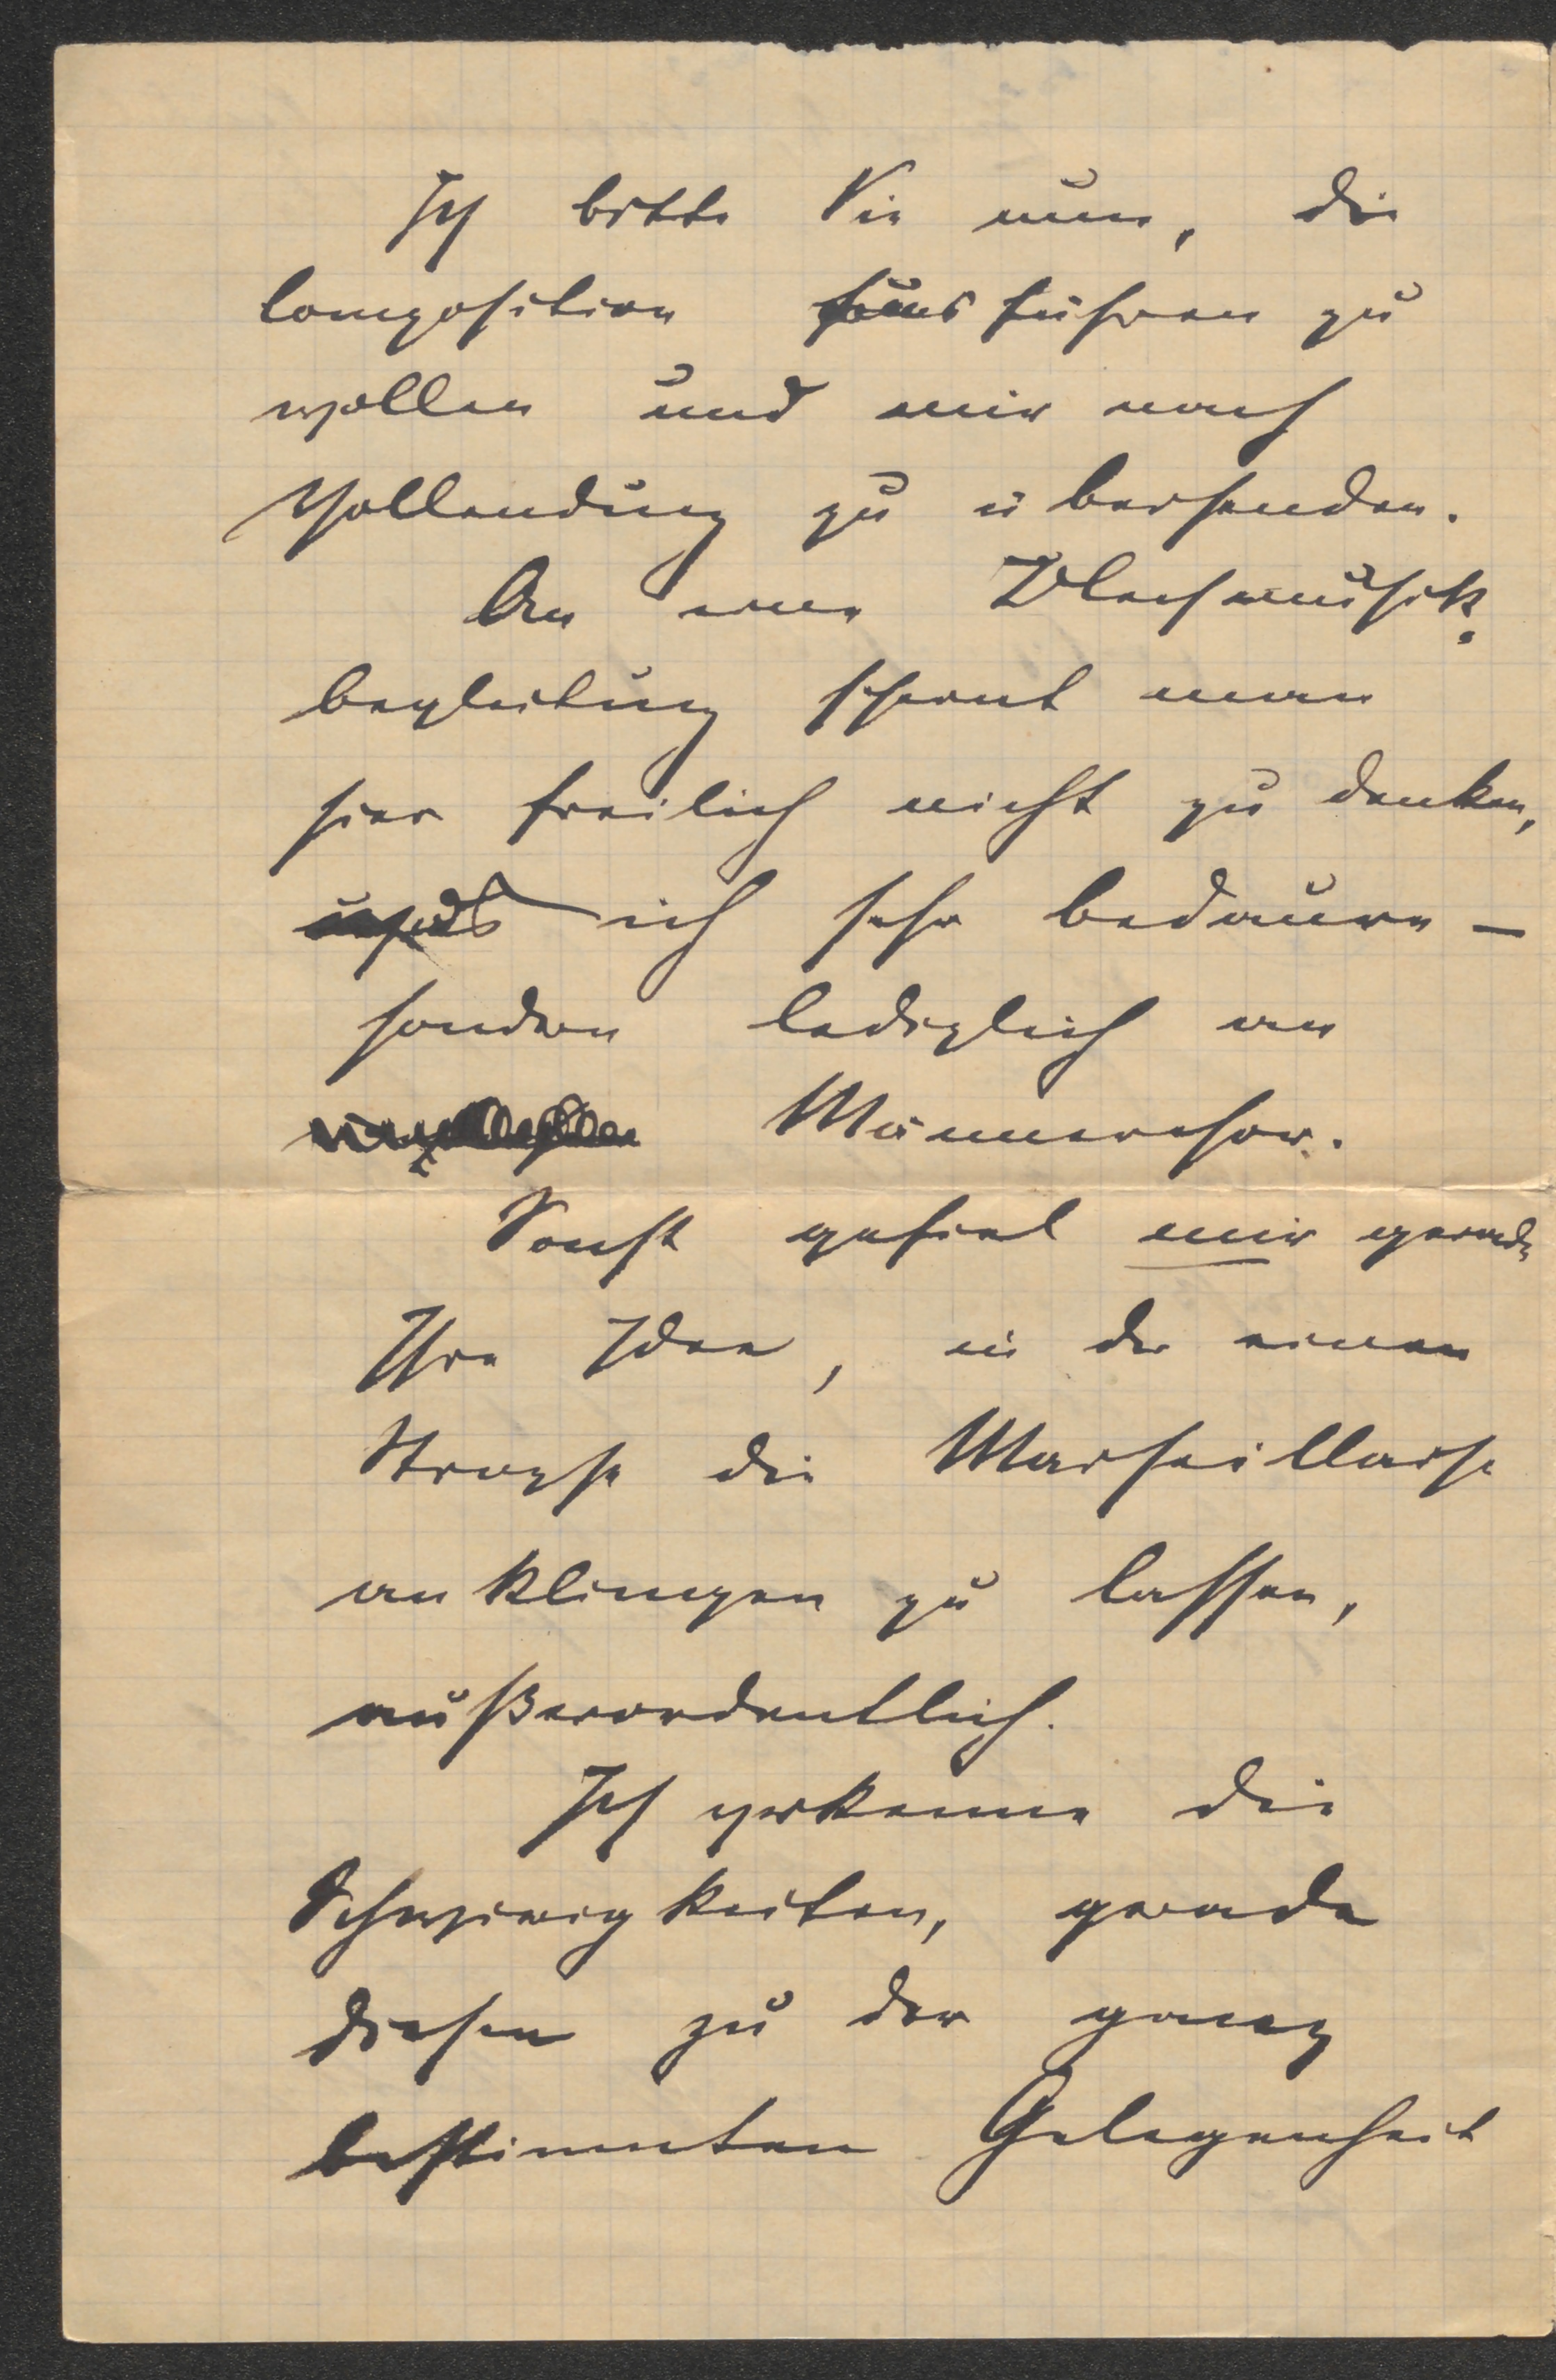 Ich bitte Sie nun, die
Composition ausführen zu
wollen und mir nach
Vollendung zu übersenden.
An eine Blechmusik-
begleitung scheint man
hier freilich nicht zu denken,
ich sehr bedaure –
sondern lediglich an
Männerchor.
Sonst gefiel mir gerade
Ihre Idee, in der einen
Strophe die Marseillaise
anklingen zu lassen,
außerordentlich.
Ich verkenne die
Schwierigkeiten, gerade
diesen zu der ganz
bestimmten Gelegenheit